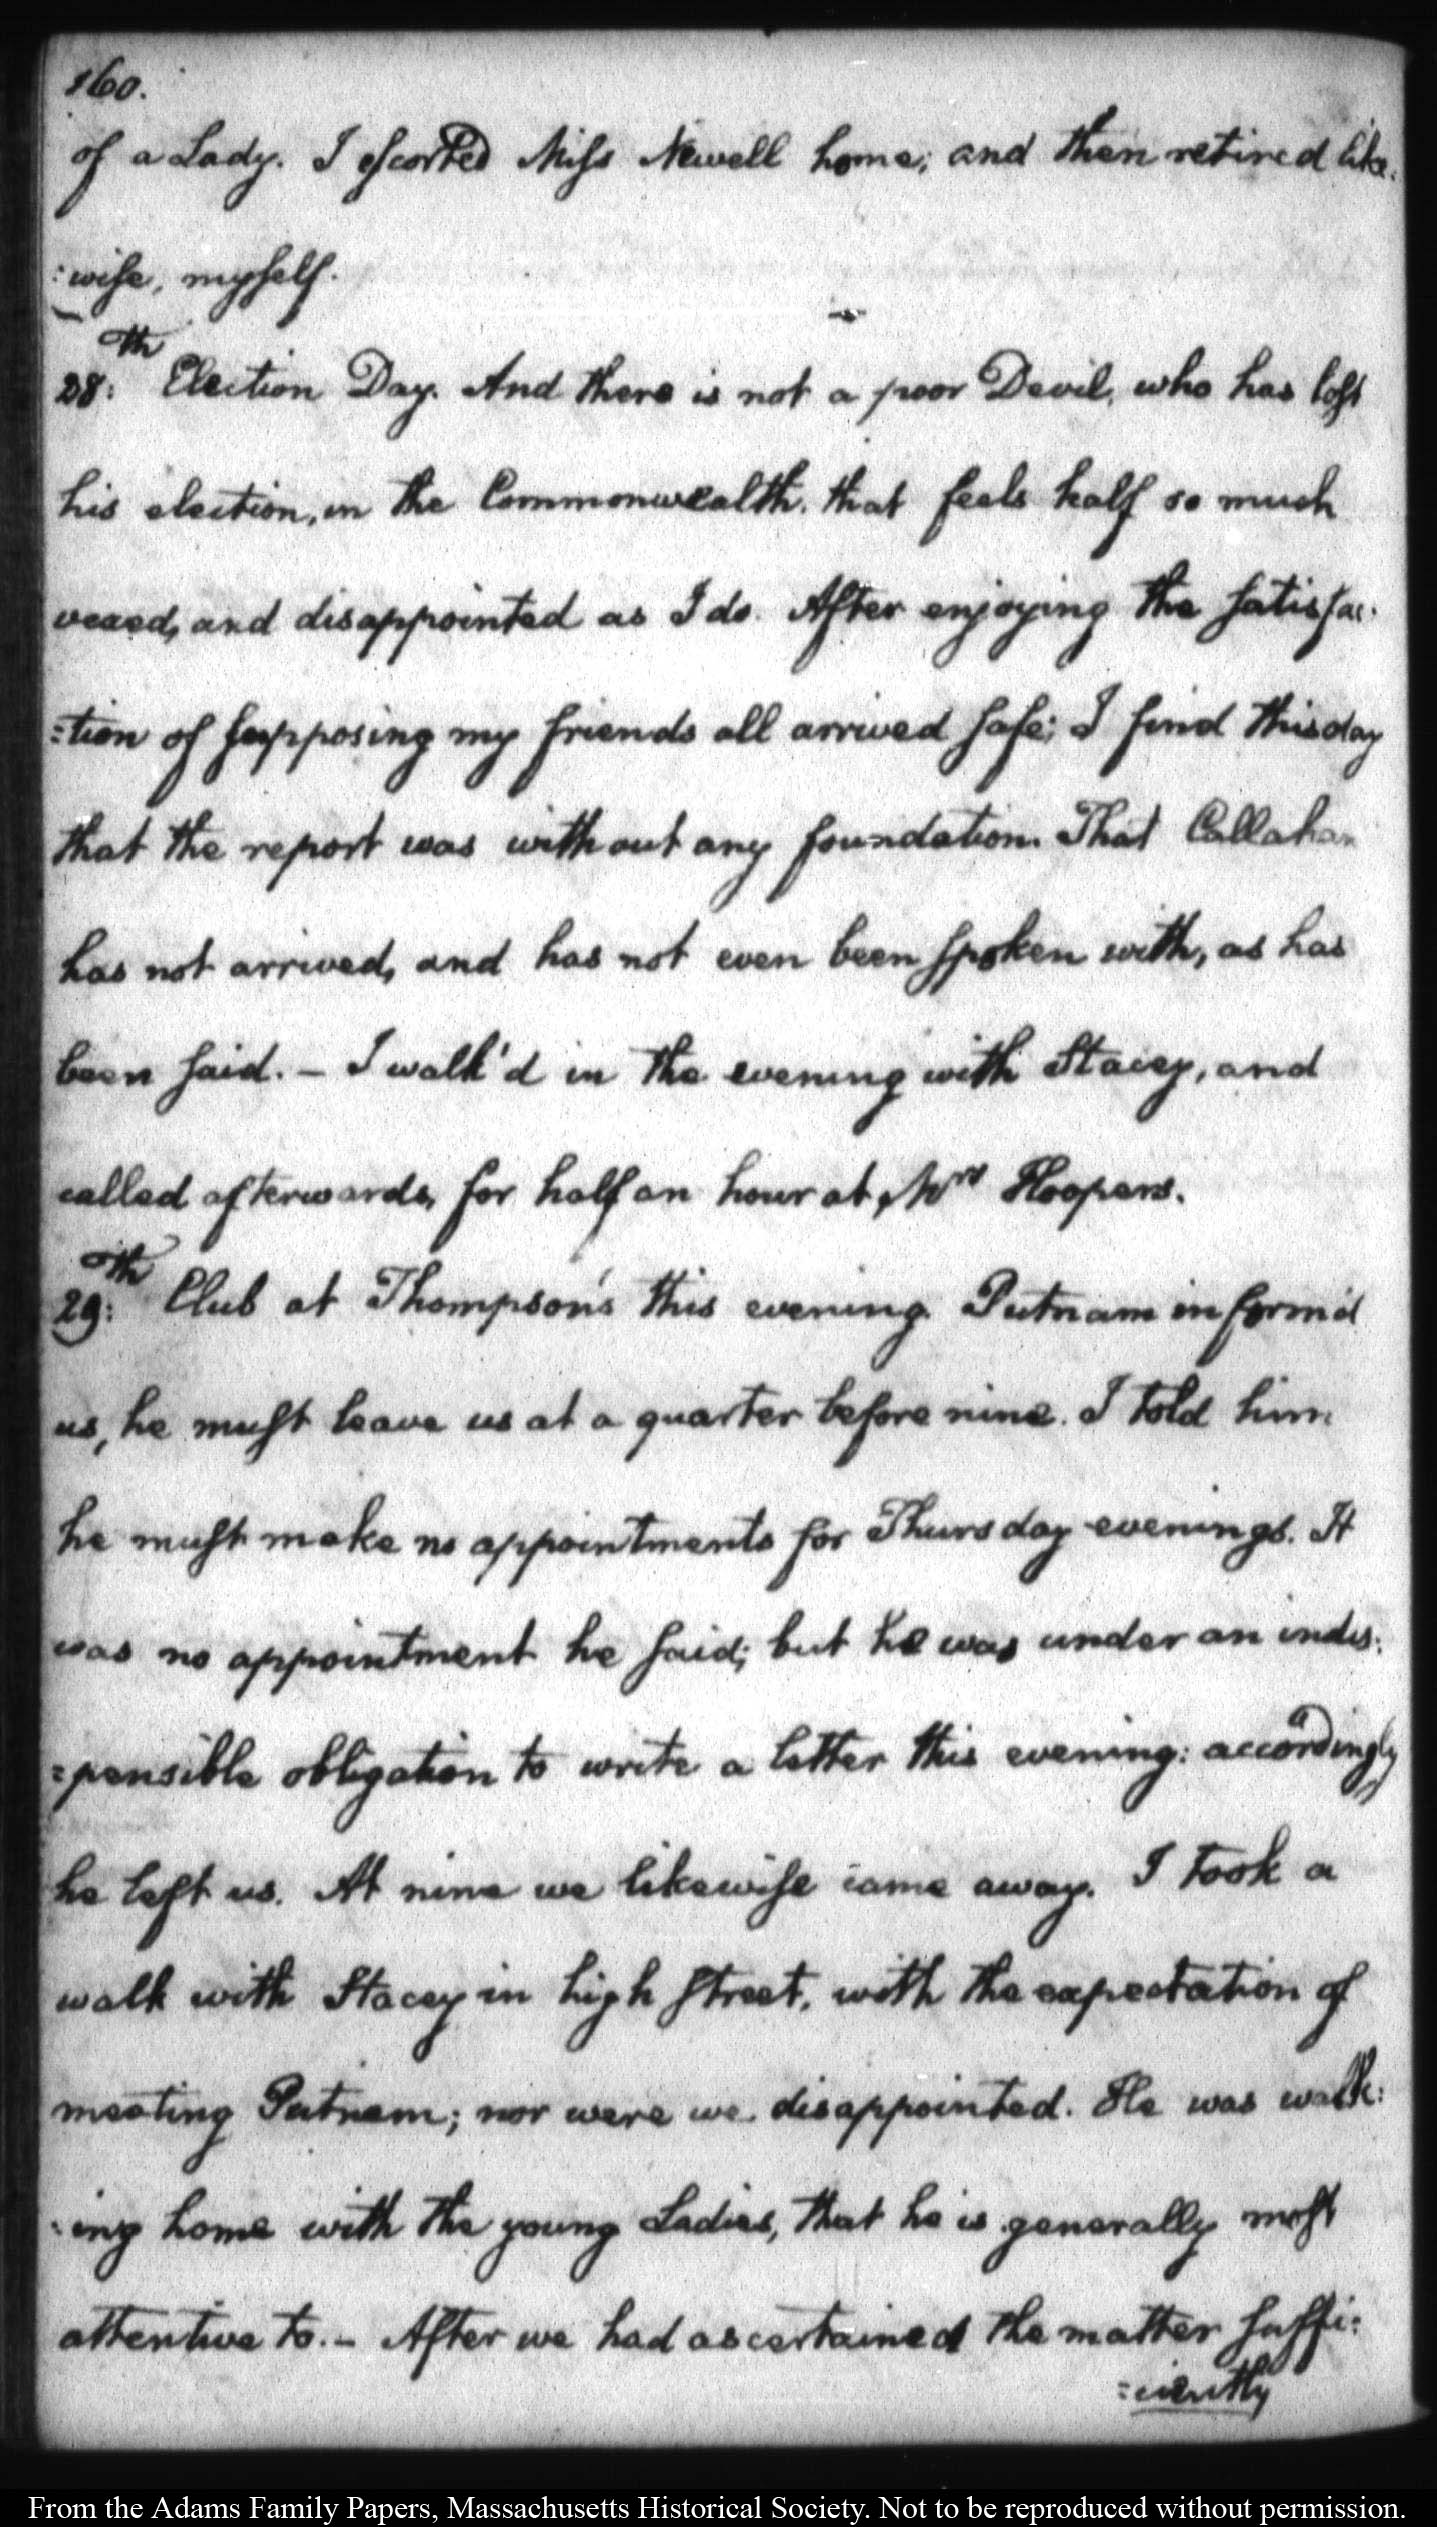 160.
of a Lady. I escorted Miss Newell home; and then retired like:
:wise, myself.
28:th Election Day. And there is not a poor Devil, who has lost
his election, in the Commonwealth, that feels half so much
vexed, and disappointed as I do. After enjoying the satisfac:
=tion of supposing my friends all arrived safe; I find this day
that the report was without any foundation. That Callahan
has not arrived, and has not even been spoken with, as has
been said. – I walk'd in the evening with Stacey, and
called afterwards, for half an hour at Mrs Hoopers.
29:th Club at Thompson's this evening. Putnam inform'd
us, he must leave us at a quarter before nine. I told him
he must make no appointments for Thursday evenings. It
was no appointment he said; but he was under an indis:
=pensible obligation to write a letter this evening: accordingly
he left us. At nine we likewise came away. I took a
walk with Stacey in high street, with the expectation of
meeting Putnam; nor were we disappointed. He was walk:
:ing home with the young Ladies, that he is generally most
attentive to. – After we had ascertained the matter suffi:
=ciently
From the Adams Family Papers, Massachusetts Historical Society. Not to be reproduced without permission.